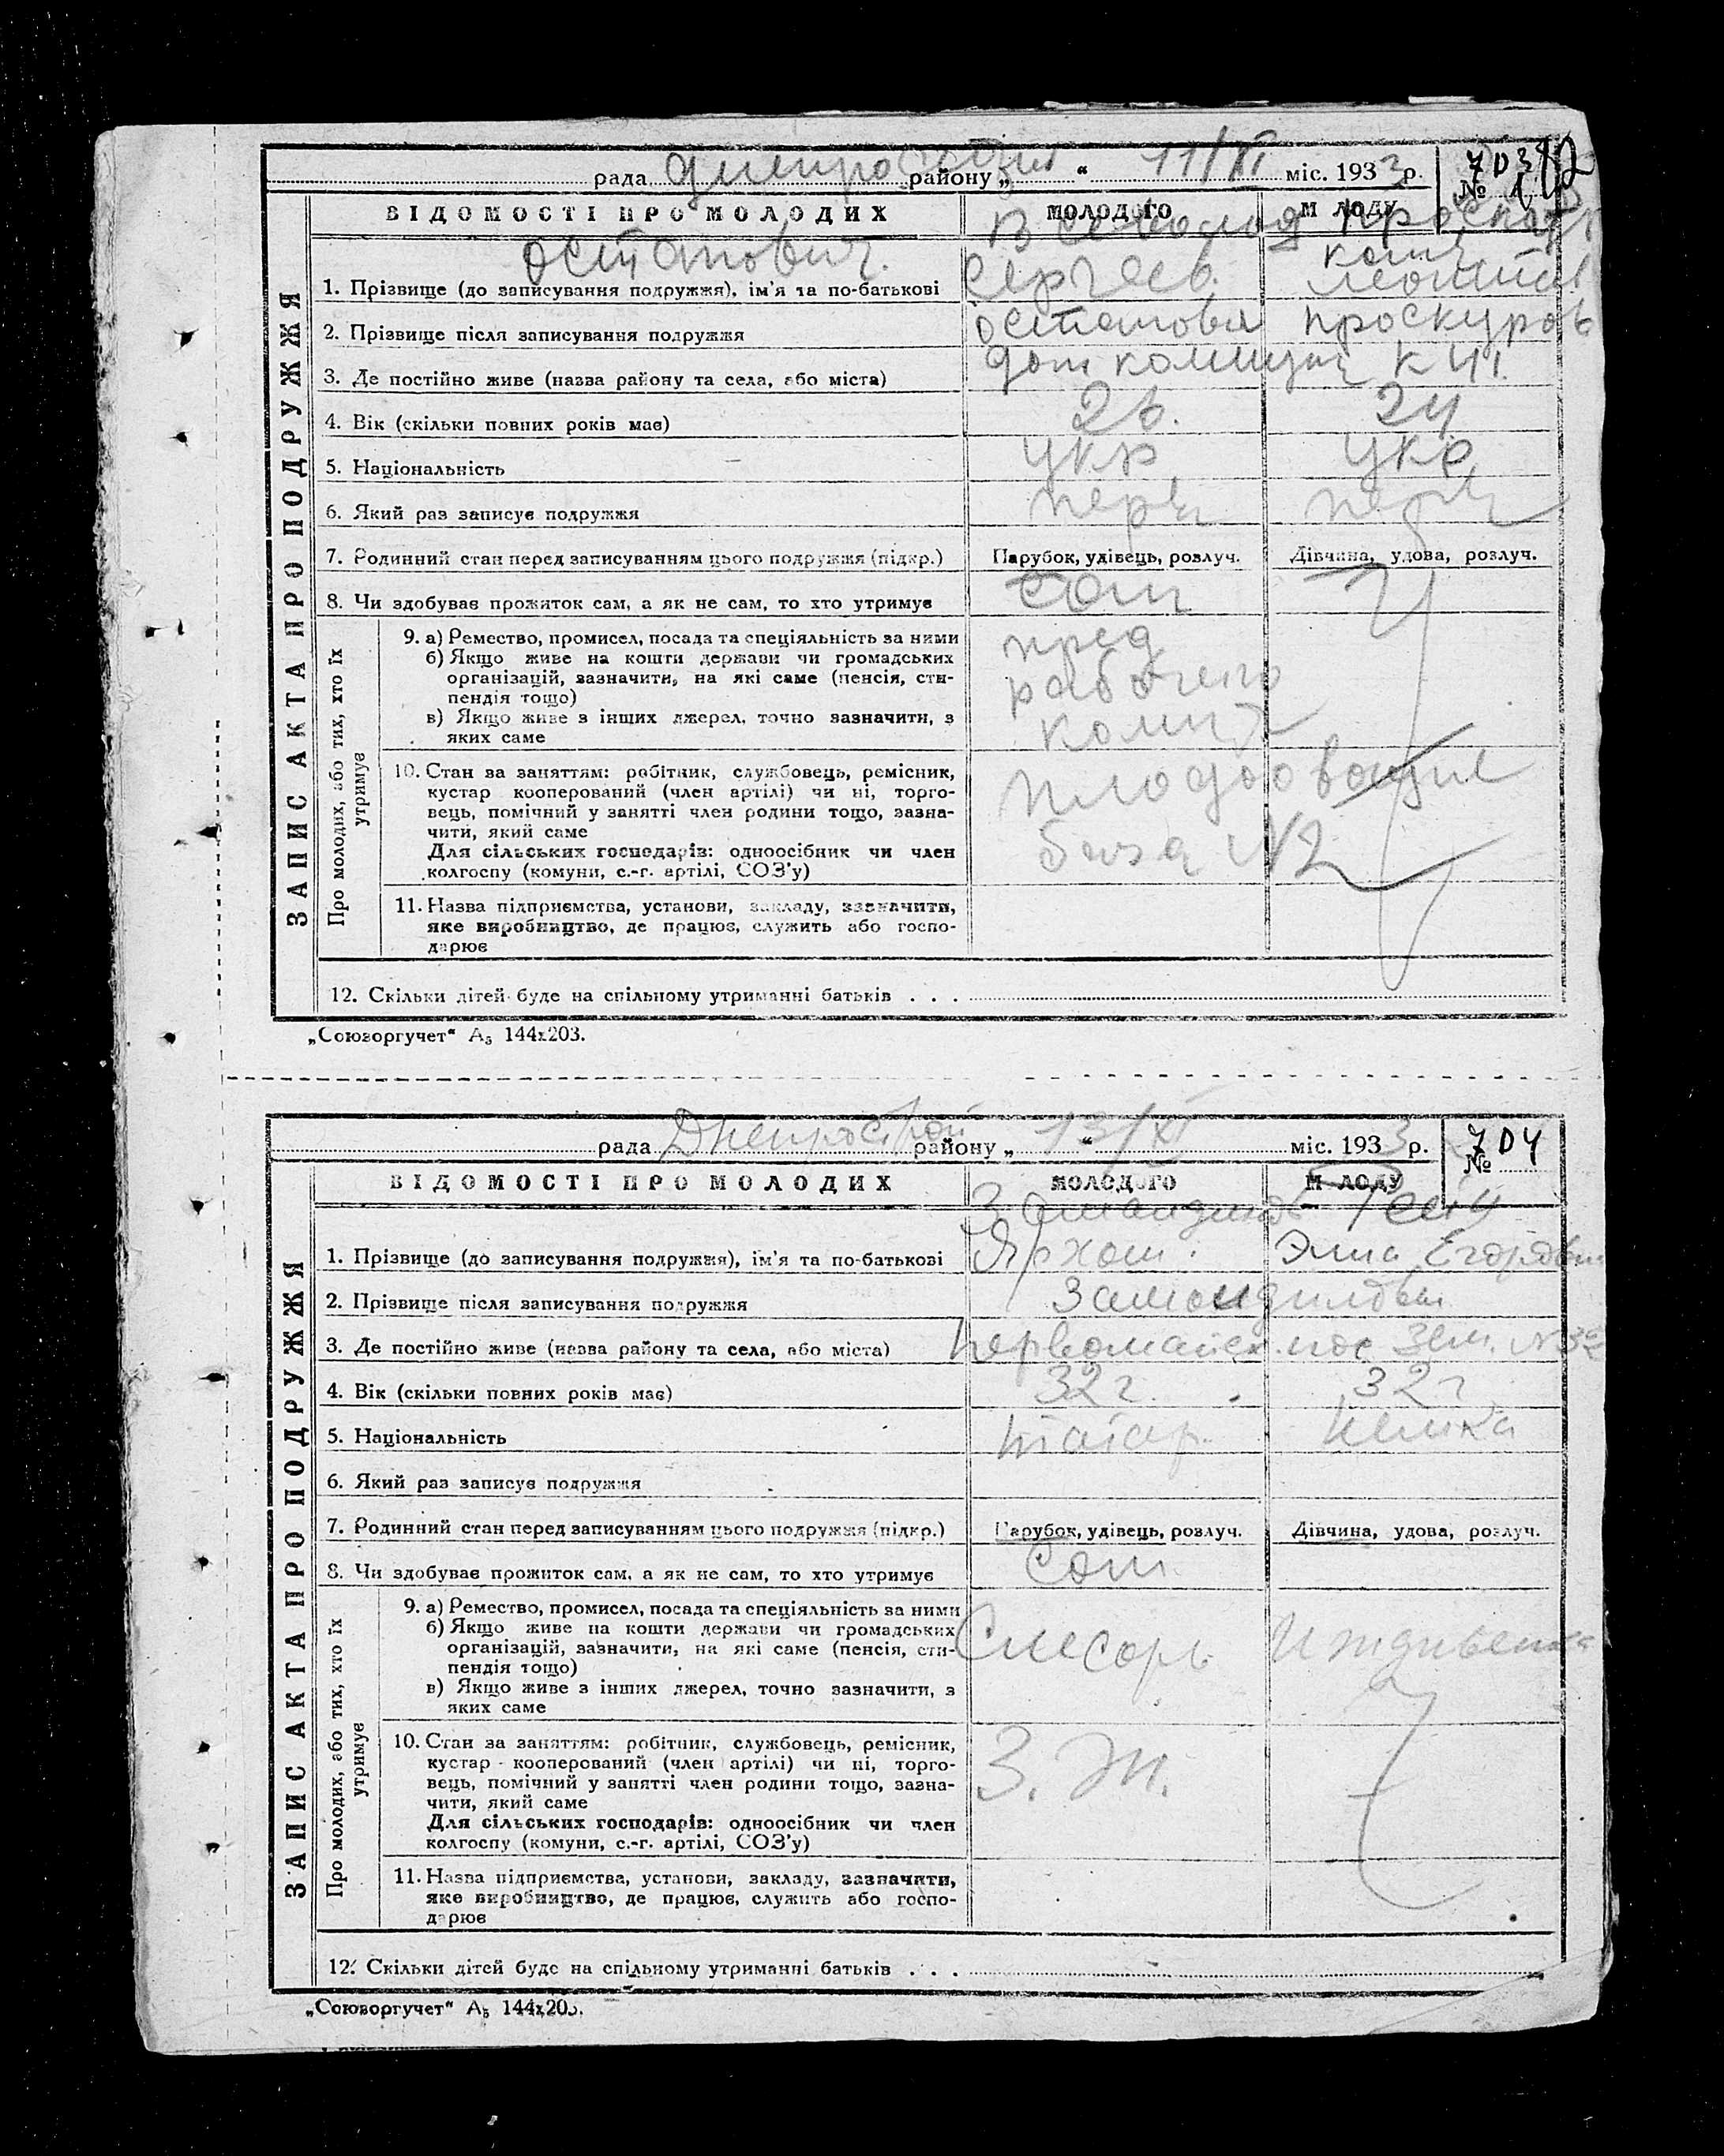 рада Днепрострой району „ “ 11/XI міс. 1933 р.
703
№
ВІДОМОСТІ ПРО МОЛОДИХ
МОЛОДОГО
М ЛОДУ
Остапович.
Всеволод
Сергеев.
1. Прізвище (до записування подружжя), ім'я та по-батькові
2. Прізвище після записування подружжя
проскуров
3. Де постійно живе (назва району та села, або міста)
дом коммуны к 41.
4. Вік (скільки повних років має) 26. 24
5. Національність укр укр
6. Який раз записує подружжя перв перв
7. Родинний стан перед записуванням цього подружжя (підкр.) Парубок, удівець, розлуч. Дівчина, удова, розлуч.
8. Чи здобуває прожиток сам, а як не сам, то хто утримує сам
ЗАПИС АКТА ПРО ПОДРУЖЖЯ
Про молодих, або тих, хто їх утримує
9. а) Ремество, промисел, посада та спеціяльність за ними
б) Якщо живе на кошти держави чи громадських
організацій, зазначити, на які саме (пенсія, сти-
пендія тощо)
в) Якщо живе з інших джерел, точно зазначити, з
яких саме
пред
рабочего
комит
10. Стан за заняттям: робітник, службовець, ремісник,
кустар кооперований (член артілі) чи ні, торго-
вець, помічний у занятті член родини тощо, зазна-
чити, який саме
Для сільських господарів: одноосібник чи член
колгоспу (комуни, с.-г. артілі, СОЗ'у)
плодоовощне
база N2
11. Назва підприємства, установи, закладу, зазначити,
яке виробництво, де працює, служить або госпо-
дарює
12. Скільки дітей буде на спільному утриманні батьків . . .
„Союзоргучет“ А₅ 144х203.
рада Днепрострой району „ 13/XI “ міс. 1933 р.
704
№
ВІДОМОСТІ ПРО МОЛОДИХ
МОЛОДОГО
М ЛОДУ
1. Прізвище (до записування подружжя), ім'я та по-батькові
Эмма Егоровн
2. Прізвище після записування подружжя
3. Де постійно живе (назва району та села, або міста)
Первомайск. пос зем. N 32
4. Вік (скільки повних років має) 32 г. 32 г
5. Національність татар. немка
6. Який раз записує подружжя
7. Родинний стан перед записуванням цього подружжя (підкр.) Парубок, удівець, розлуч. Дівчина, удова, розлуч.
8. Чи здобуває прожиток сам, а як не сам, то хто утримує Сам
ЗАПИС АКТА ПРО ПОДРУЖЖЯ
Про молодих, або тих, хто їх утримує
9. а) Ремество, промисел, посада та спеціяльність за ними
б) Якщо живе на кошти держави чи громадських
організацій, зазначити, на які саме (пенсія, сти-
пендія тощо)
в) Якщо живе з інших джерел, точно зазначити, з
яких саме
Слесарь Иждивенка
10. Стан за заняттям: робітник, службовець, ремісник,
кустар кооперований (член артілі) чи ні, торго-
вець, помічний у занятті член родини тощо, зазна-
чити, який саме
Для сільських господарів: одноосібник чи член
колгоспу (комуни, с.-г. артілі, СОЗ'у)
11. Назва підприємства, установи, закладу, зазначити,
яке виробництво, де працює, служить або госпо-
дарює
12. Скільки дітей буде на спільному утриманні батьків . . .
„Союзоргучет“ А₅ 144х203.